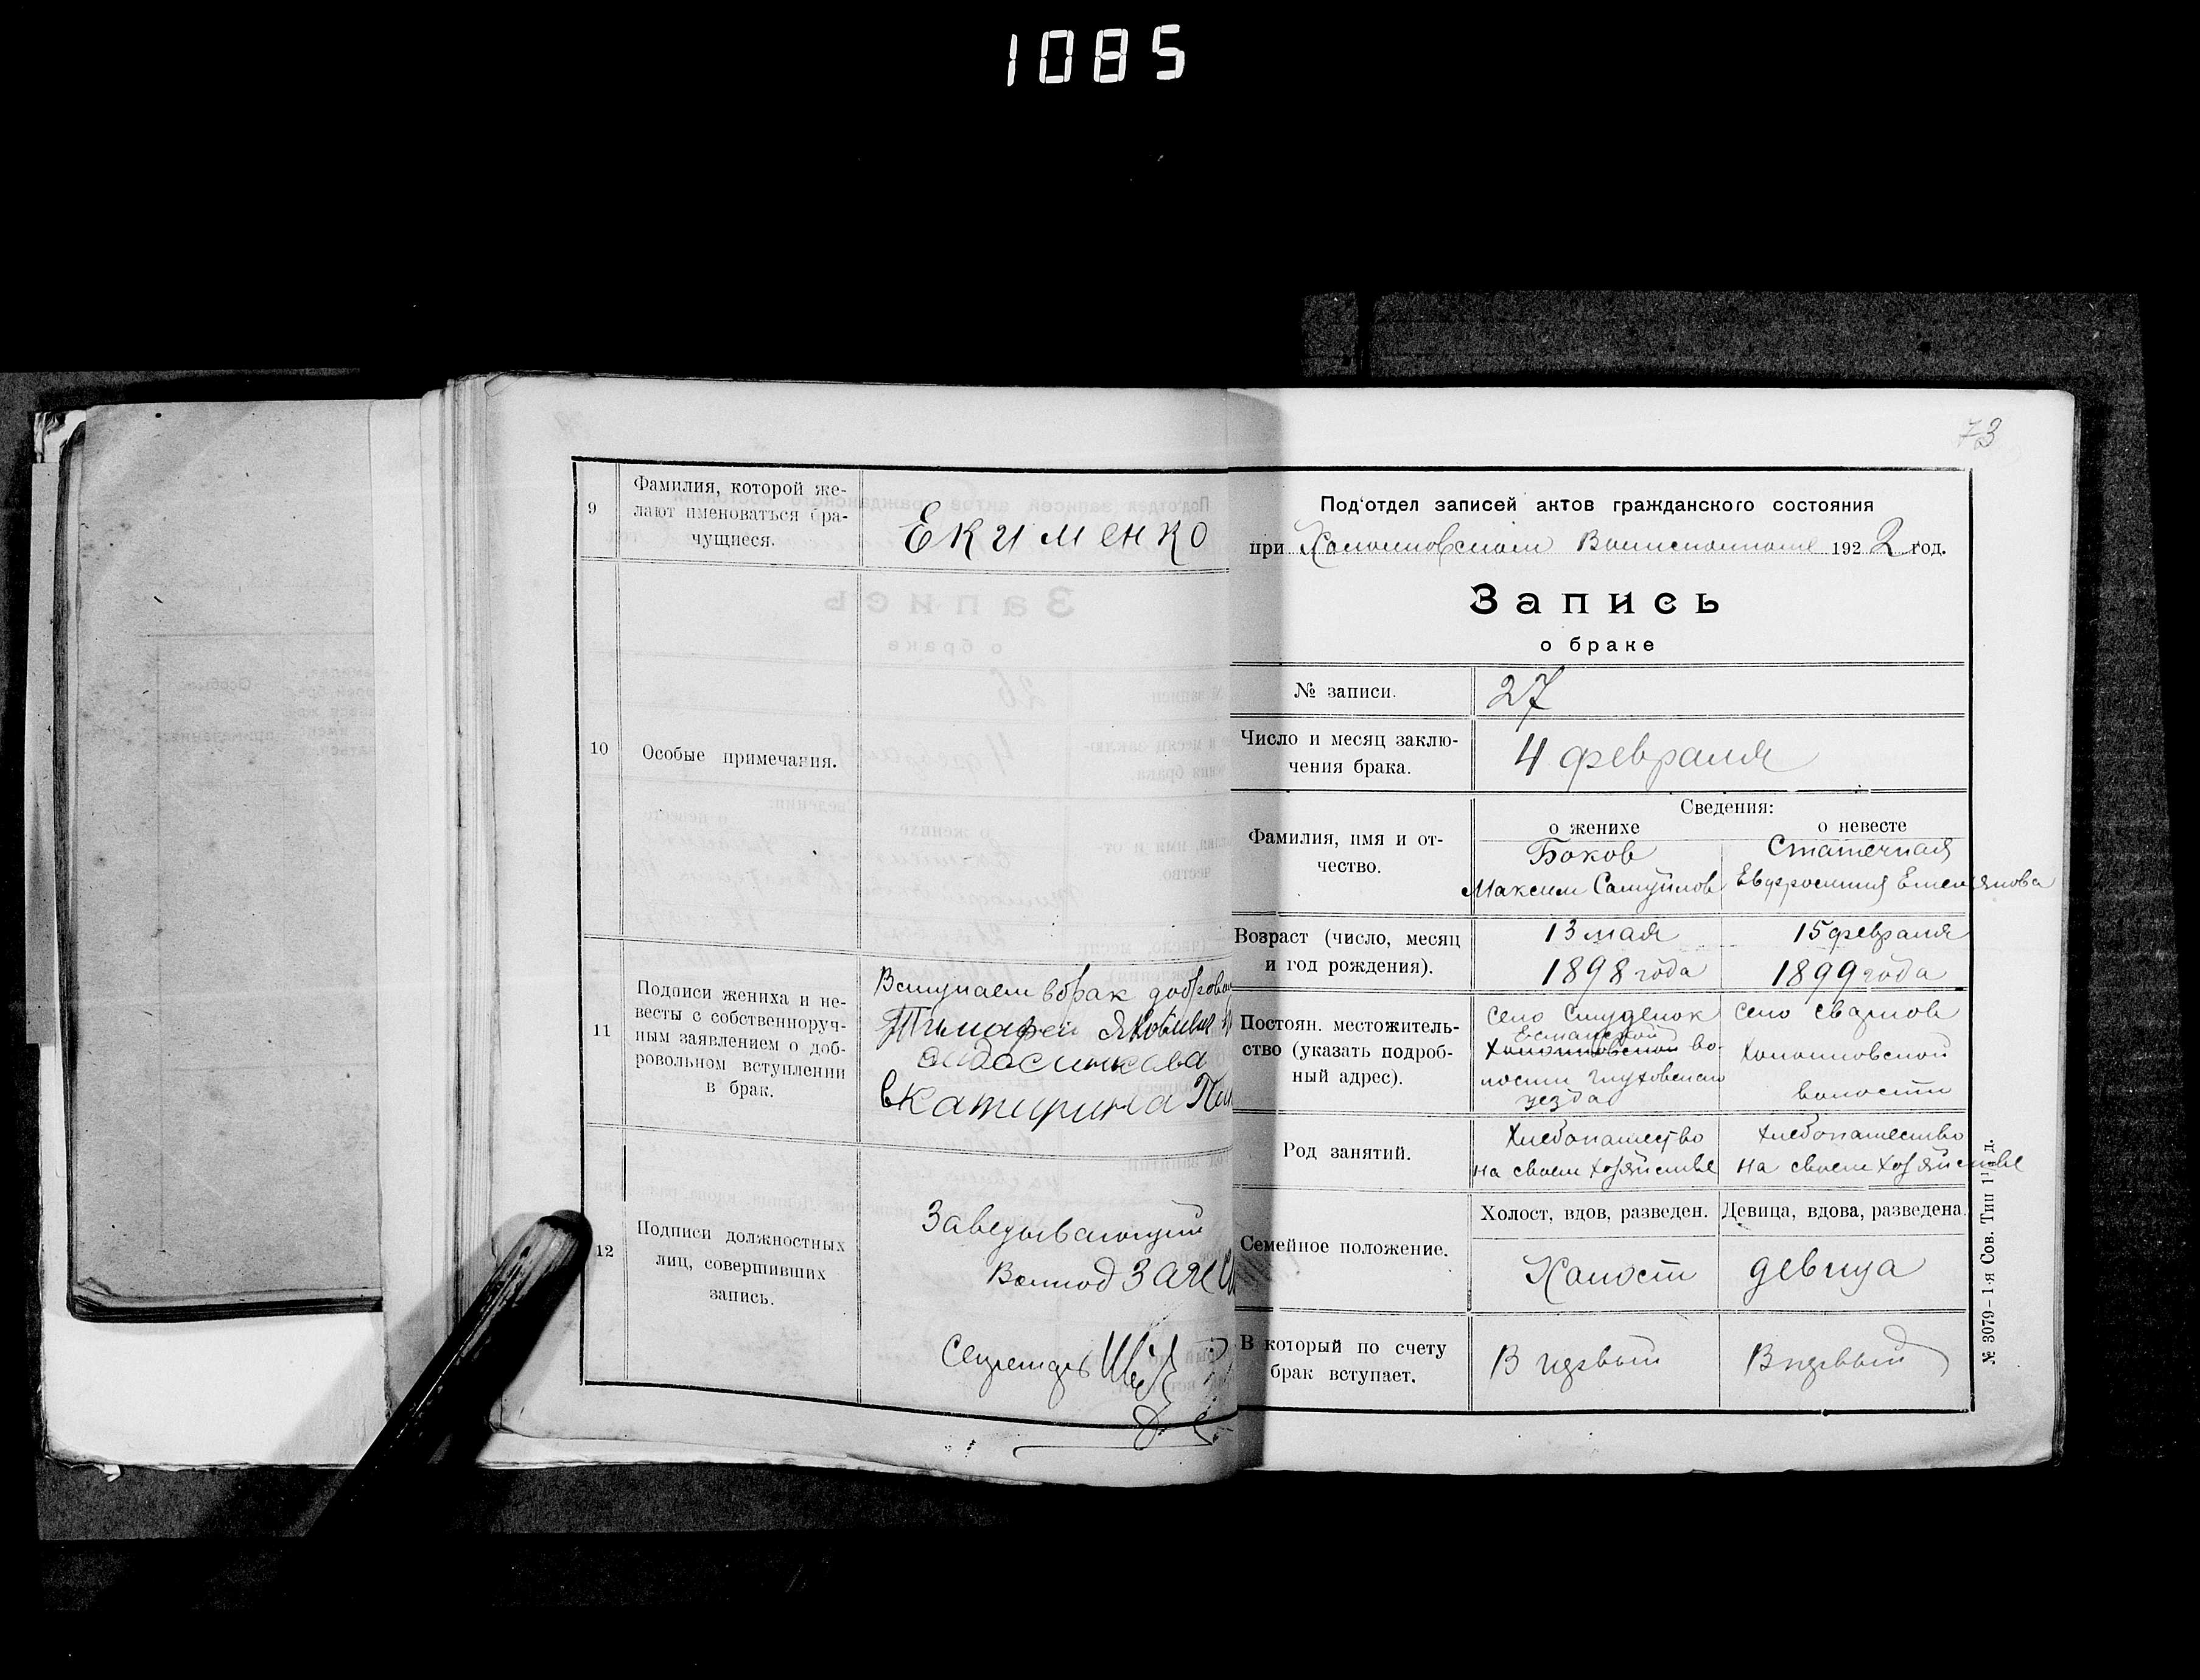 1085
9
Фамилия, которой же-
лают именоваться бра-
чущиеся.
Екименко
10
Особые примечания.
11
Подписи жениха и не-
весты с собственноруч-
ным заявлением о доб-
ровольном вступлении
в брак.
Вступаем вбрак добровол
Тимофеи
Екатирина
12
Подписи должностных
лиц, совершивших
запись.
Заведывающий
Волпод ЗАГС
Секретарь
73
Под‘отдел записей актов гражданского состояния
при Холопковском Волисполкоме 192 2 год.
Запись
о браке
№ записи.
27
Число и месяц заклю-
чения брака.
4 февраля
Фамилия, имя и от-
чество.
Сведения:
о женихе
о невесте
Боков
Максим Самуйлов
Статечная
Евфросиния Емельянова
Возраст (число, месяц
и год рождения).
13 мая
1898 года
15 февраля
1899 года
Постоян. местожитель-
ство (указать подроб-
ный адрес).
село Студенок
Есманской
Холопковской во-
лости Глуховского
уезда
село Сварков
Холопковской
волости
Род занятий.
Хлебопашество
на своем хозяйстве
Хлебопашество
на своем хозяйстве
Семейное положение.
Холост, вдов, разведен.
Девица, вдова, разведена.
Холост
девица
В который по счету
брак вступает.
В первый
В первый
№ 3079–1-я Сов. Тип 1 д.